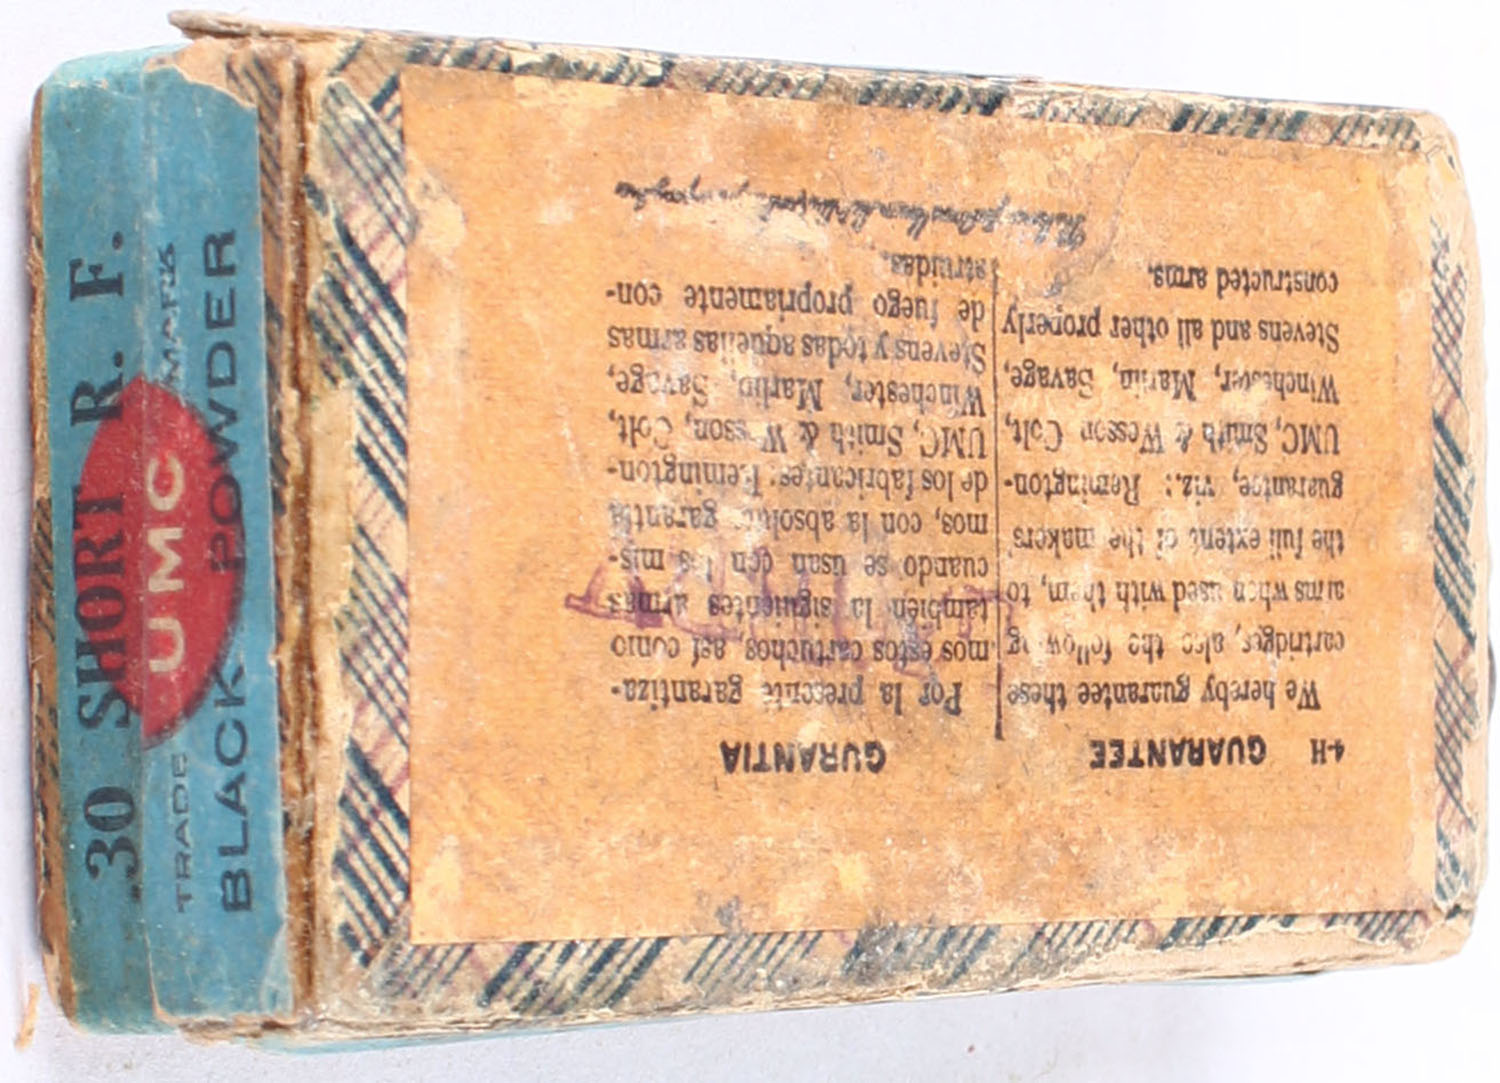 30 SHORT R. F.
TRADE MARK
UMC
BLACK POWDER
4-H GUARANTEE
We hereby guarantee these
cartridges, also the following
arms when used with them, to
the full extent of the makers'
guarantee, viz.: Remington-
UMC, Smith & Wesson Colt,
Winchester, Marlin, Savage,
Stevens and all other properly
constructed arms.
GURANTIA
Por la presente garantiza-
mos estos cartuchos, así como
también la siguientes armas
cuando se usan con los mis-
mos, con la absoluta garantía
de los fabricantes: Remington-
UMC, Smith & Wesson, Colt,
Winchester, Marlin, Savage,
Stevens y todas aquellas armas
de fuego propriamente con-
struidas.